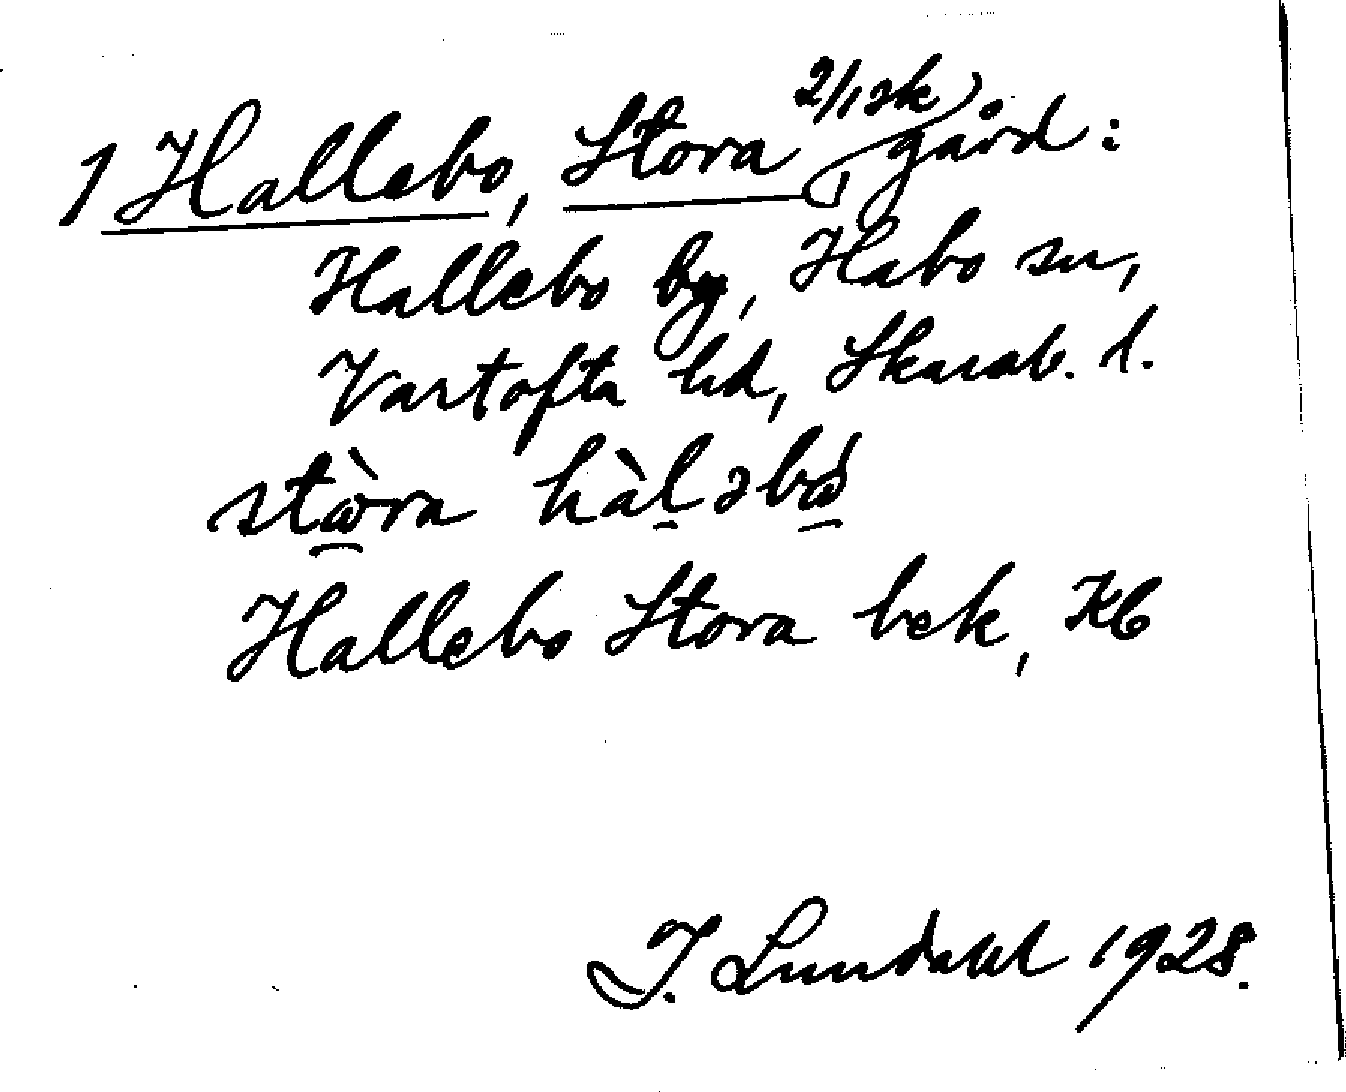 1 Hallebo, Stora 2/1 sk gård:
Hallebo by, Habo sn,
Vartofta hd, Skarab. l.
stὼra hàl̠əbώ
Hallebo Stora bek, Kb
I. Lundahl 1928.